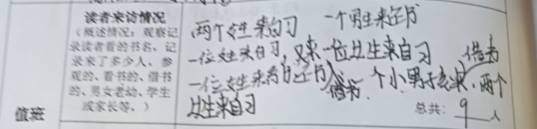 读者来访情况
（概述情况：观察记
录读者看的书名，记
录来了多少人，参
观的、看书的、借书
的、男女老幼、学生
或家长等。）
值班
两个女生来自习 一个男生来还书
一位女生来自习，又来一位女生来自习 借书
一位女生来看书 借书 一个小男子来，两个
女生来自习
总共：9人